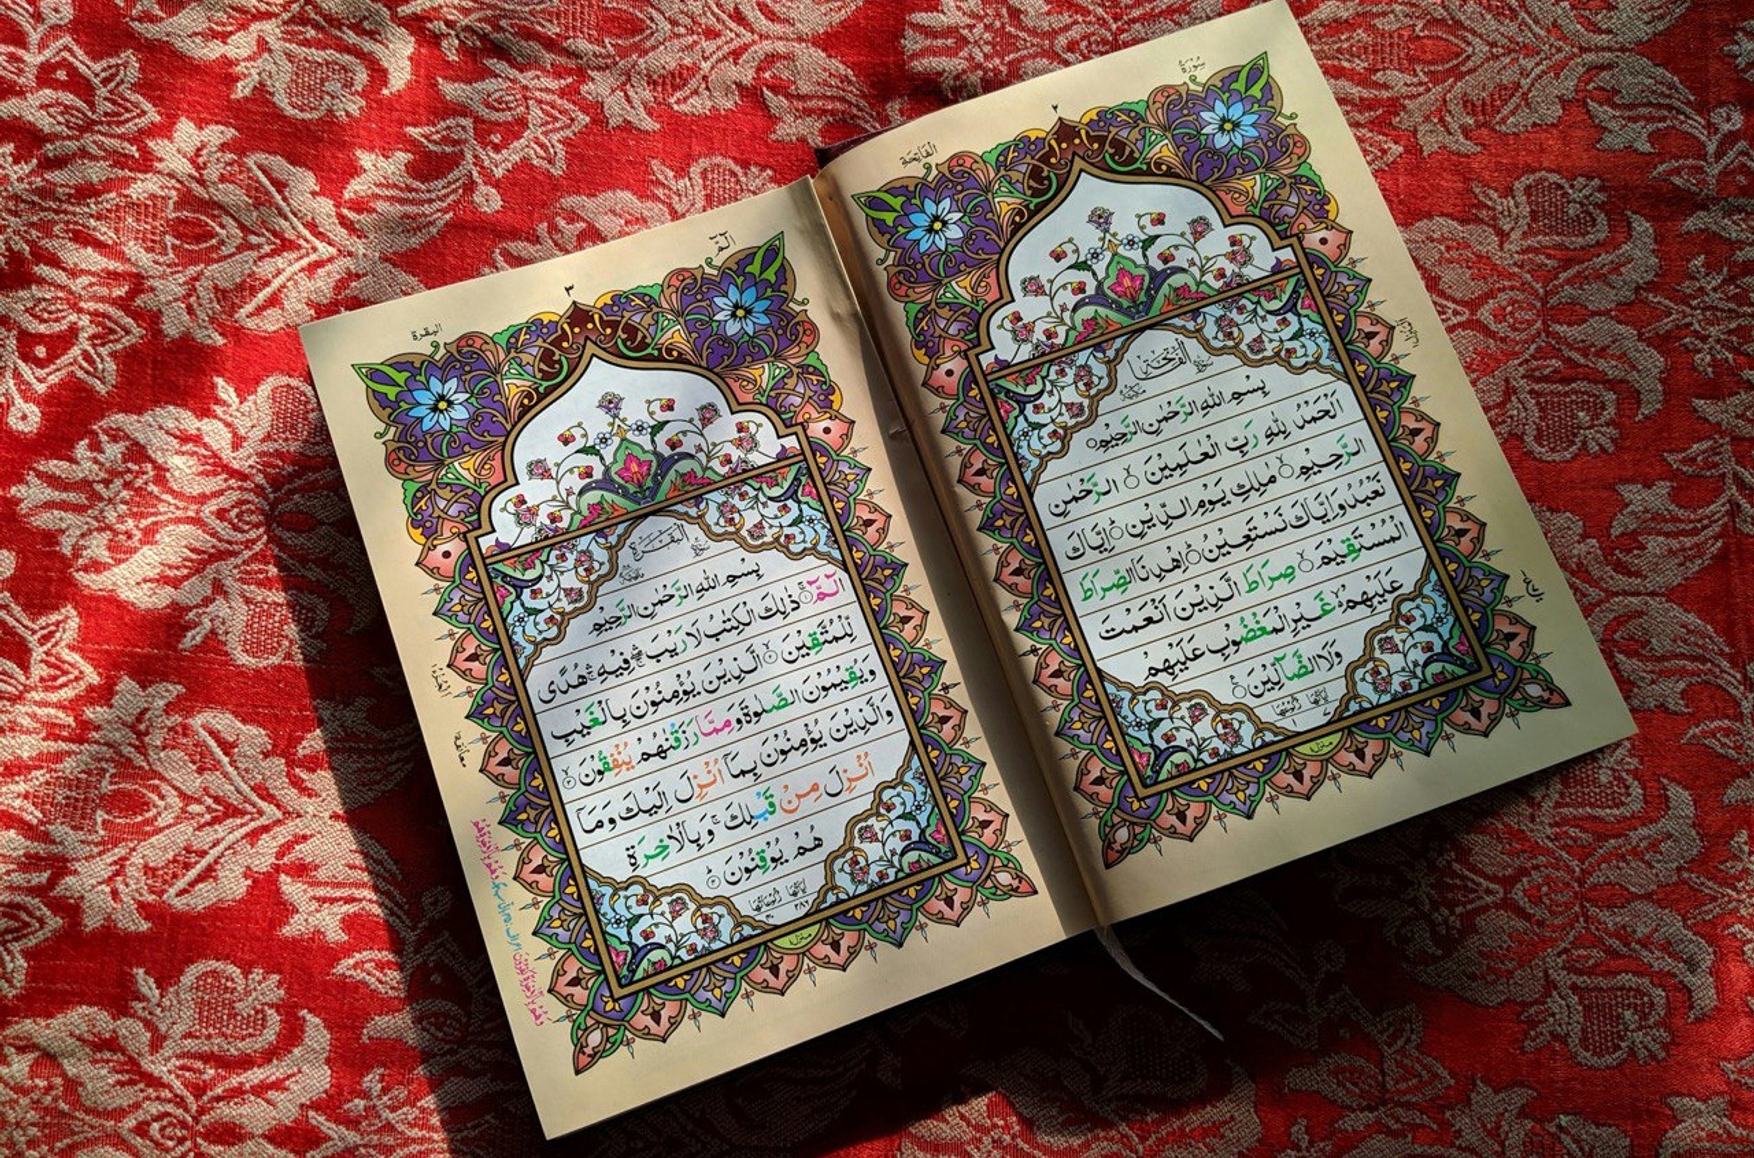 سُوْرَةُ
٢
الْفَاتِحَة
سُوْرَةُ الْفَاتِحَة مَكِّيَّة
بِسْمِ اللّٰهِ الرَّحْمٰنِ الرَّحِيْمِ
اَلْحَمْدُ لِلّٰهِ رَبِّ الْعٰلَمِيْنَ ۙ الرَّحْمٰنِ
الرَّحِيْمِ ۙ مٰلِكِ يَوْمِ الدِّيْنِ ؕ اِيَّاكَ
نَعْبُدُ وَاِيَّاكَ نَسْتَعِيْنُ ؕ اِهْدِنَا الصِّرَاطَ
الْمُسْتَقِيْمَ ۙ صِرَاطَ الَّذِيْنَ اَنْعَمْتَ
عَلَيْهِمْ ۙ غَيْرِ الْمَغْضُوْبِ عَلَيْهِمْ
وَلَا الضَّآلِّيْنَ
اٰيَاتُهَا ٧ رُكُوْعُهَا ١
الٓمّٓ
٣
الْبَقَرَة
سُوْرَةُ الْبَقَرَة مَدَنِيَّة
بِسْمِ اللّٰهِ الرَّحْمٰنِ الرَّحِيْمِ
الٓمّٓ ۚ ذٰلِكَ الْكِتٰبُ لَا رَيْبَ ۛ فِيْهِ ۛ هُدًى
لِّلْمُتَّقِيْنَ ۙ الَّذِيْنَ يُؤْمِنُوْنَ بِالْغَيْبِ
وَيُقِيْمُوْنَ الصَّلٰوةَ وَمِمَّا رَزَقْنٰهُمْ يُنْفِقُوْنَ ۙ
وَالَّذِيْنَ يُؤْمِنُوْنَ بِمَآ اُنْزِلَ اِلَيْكَ وَمَآ
اُنْزِلَ مِنْ قَبْلِكَ ۚ وَبِالْاٰخِرَةِ
هُمْ يُوْقِنُوْنَ ؕ
اٰيَاتُهَا ٢٨٦ رُكُوْعَاتُهَا ٤٠